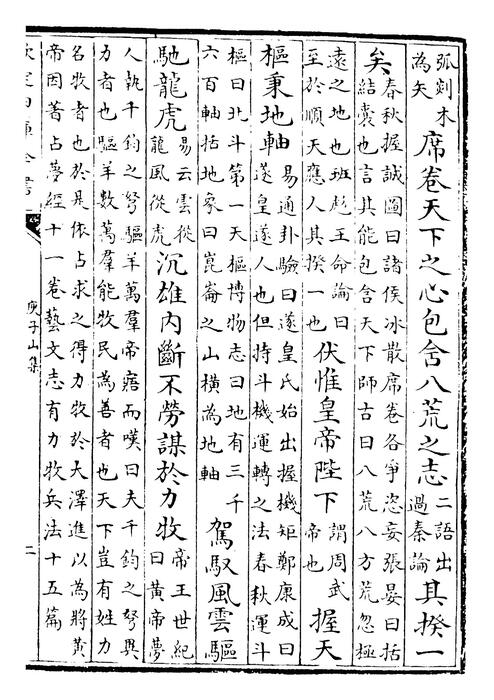 弧剡木
為矢
席卷天下之心包含八荒之志
二語出
過秦論
其揆一
矣
春秋握誠圖曰諸侯冰散席卷各爭恣妄張晏曰括
結囊也言其能包含天下師古曰八荒八方荒忽極
遠之地也班彪王命論曰
至於順天應人其揆一也
伏惟皇帝陛下
謂周武
帝也
握天
樞秉地軸
易通卦驗曰遂皇氏始出握機矩鄭康成曰
遂皇遂人也但持斗機運轉之法春秋運斗
樞曰北斗第一天樞博物志曰地有三千
六百軸括地象曰崑崙之山橫為地軸
駕馭風雲驅
馳龍虎
易云雲從
龍風從虎
沉雄内斷不勞謀於力牧
帝王世紀
曰黃帝夢
人執千鈞之弩驅羊萬羣帝寤而嘆曰夫千鈞之弩異
力者也驅羊數萬羣能牧民為善者也天下豈有姓力
名牧者也於是依占求之得力牧於大澤進以為將黃
帝因著占夢經十一卷藝文志有力牧兵法十五篇
欽定四庫全書
庾子山集
二